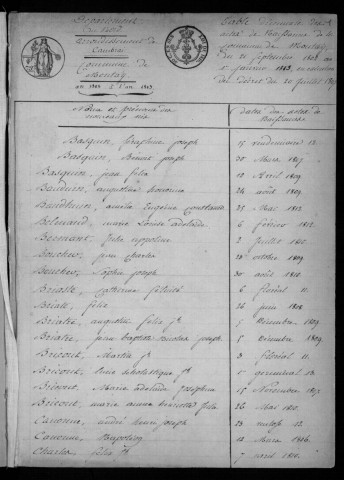 Département
du Nord
Arrondissement de
Cambrai
Commune de
Montay
an 1802 à l'an 1813
Table Décennale des
actes de Naissance de la
Commune de Montay
du 21 Septembre 1802 au
1er janvier 1813, en exécution
du décret du 20 juillet 1807
Noms et prénoms des nouveaux nés
dates des actes de Naissance
Basquin, Séraphine joseph 15 vendemiaire 13
Basquin, Benoit joseph 30 Mars 1807
Basquin, jean félix 12 Avril 1809
Bauduin, augustine 24 août 1809
Baudhuin, amelie Eugénie Constance 25 Mai 1812
Belmand, marie Louise adélaide 6 février 1812
Bermont, jules hippolite 2 juillet 1811
Boucher, jean charles 28 octobre 1809
Boucher, Sophie joseph 30 août 1810
Briatte, catherine félicité 6 floréal 11
Briatte, félix 26 juin 1808
Briatre, augustin félix jh 5 décembre 1809
Briatre, jean baptiste Nicolas joseph 5 décembre 1809
Bricout, Martin jh 3 floréal 11
Bricout, scholastique jh 5 germinal 13
Bricout, Marie adelaide Josephine 15 Novembre 1807
Bricout, marie anne henriette 26 Mai 1810
Canonne, andré henri joseph 28 nivose 12
Canonne, 12 Mars 1806
Charles, félix jh 7 avril 1810